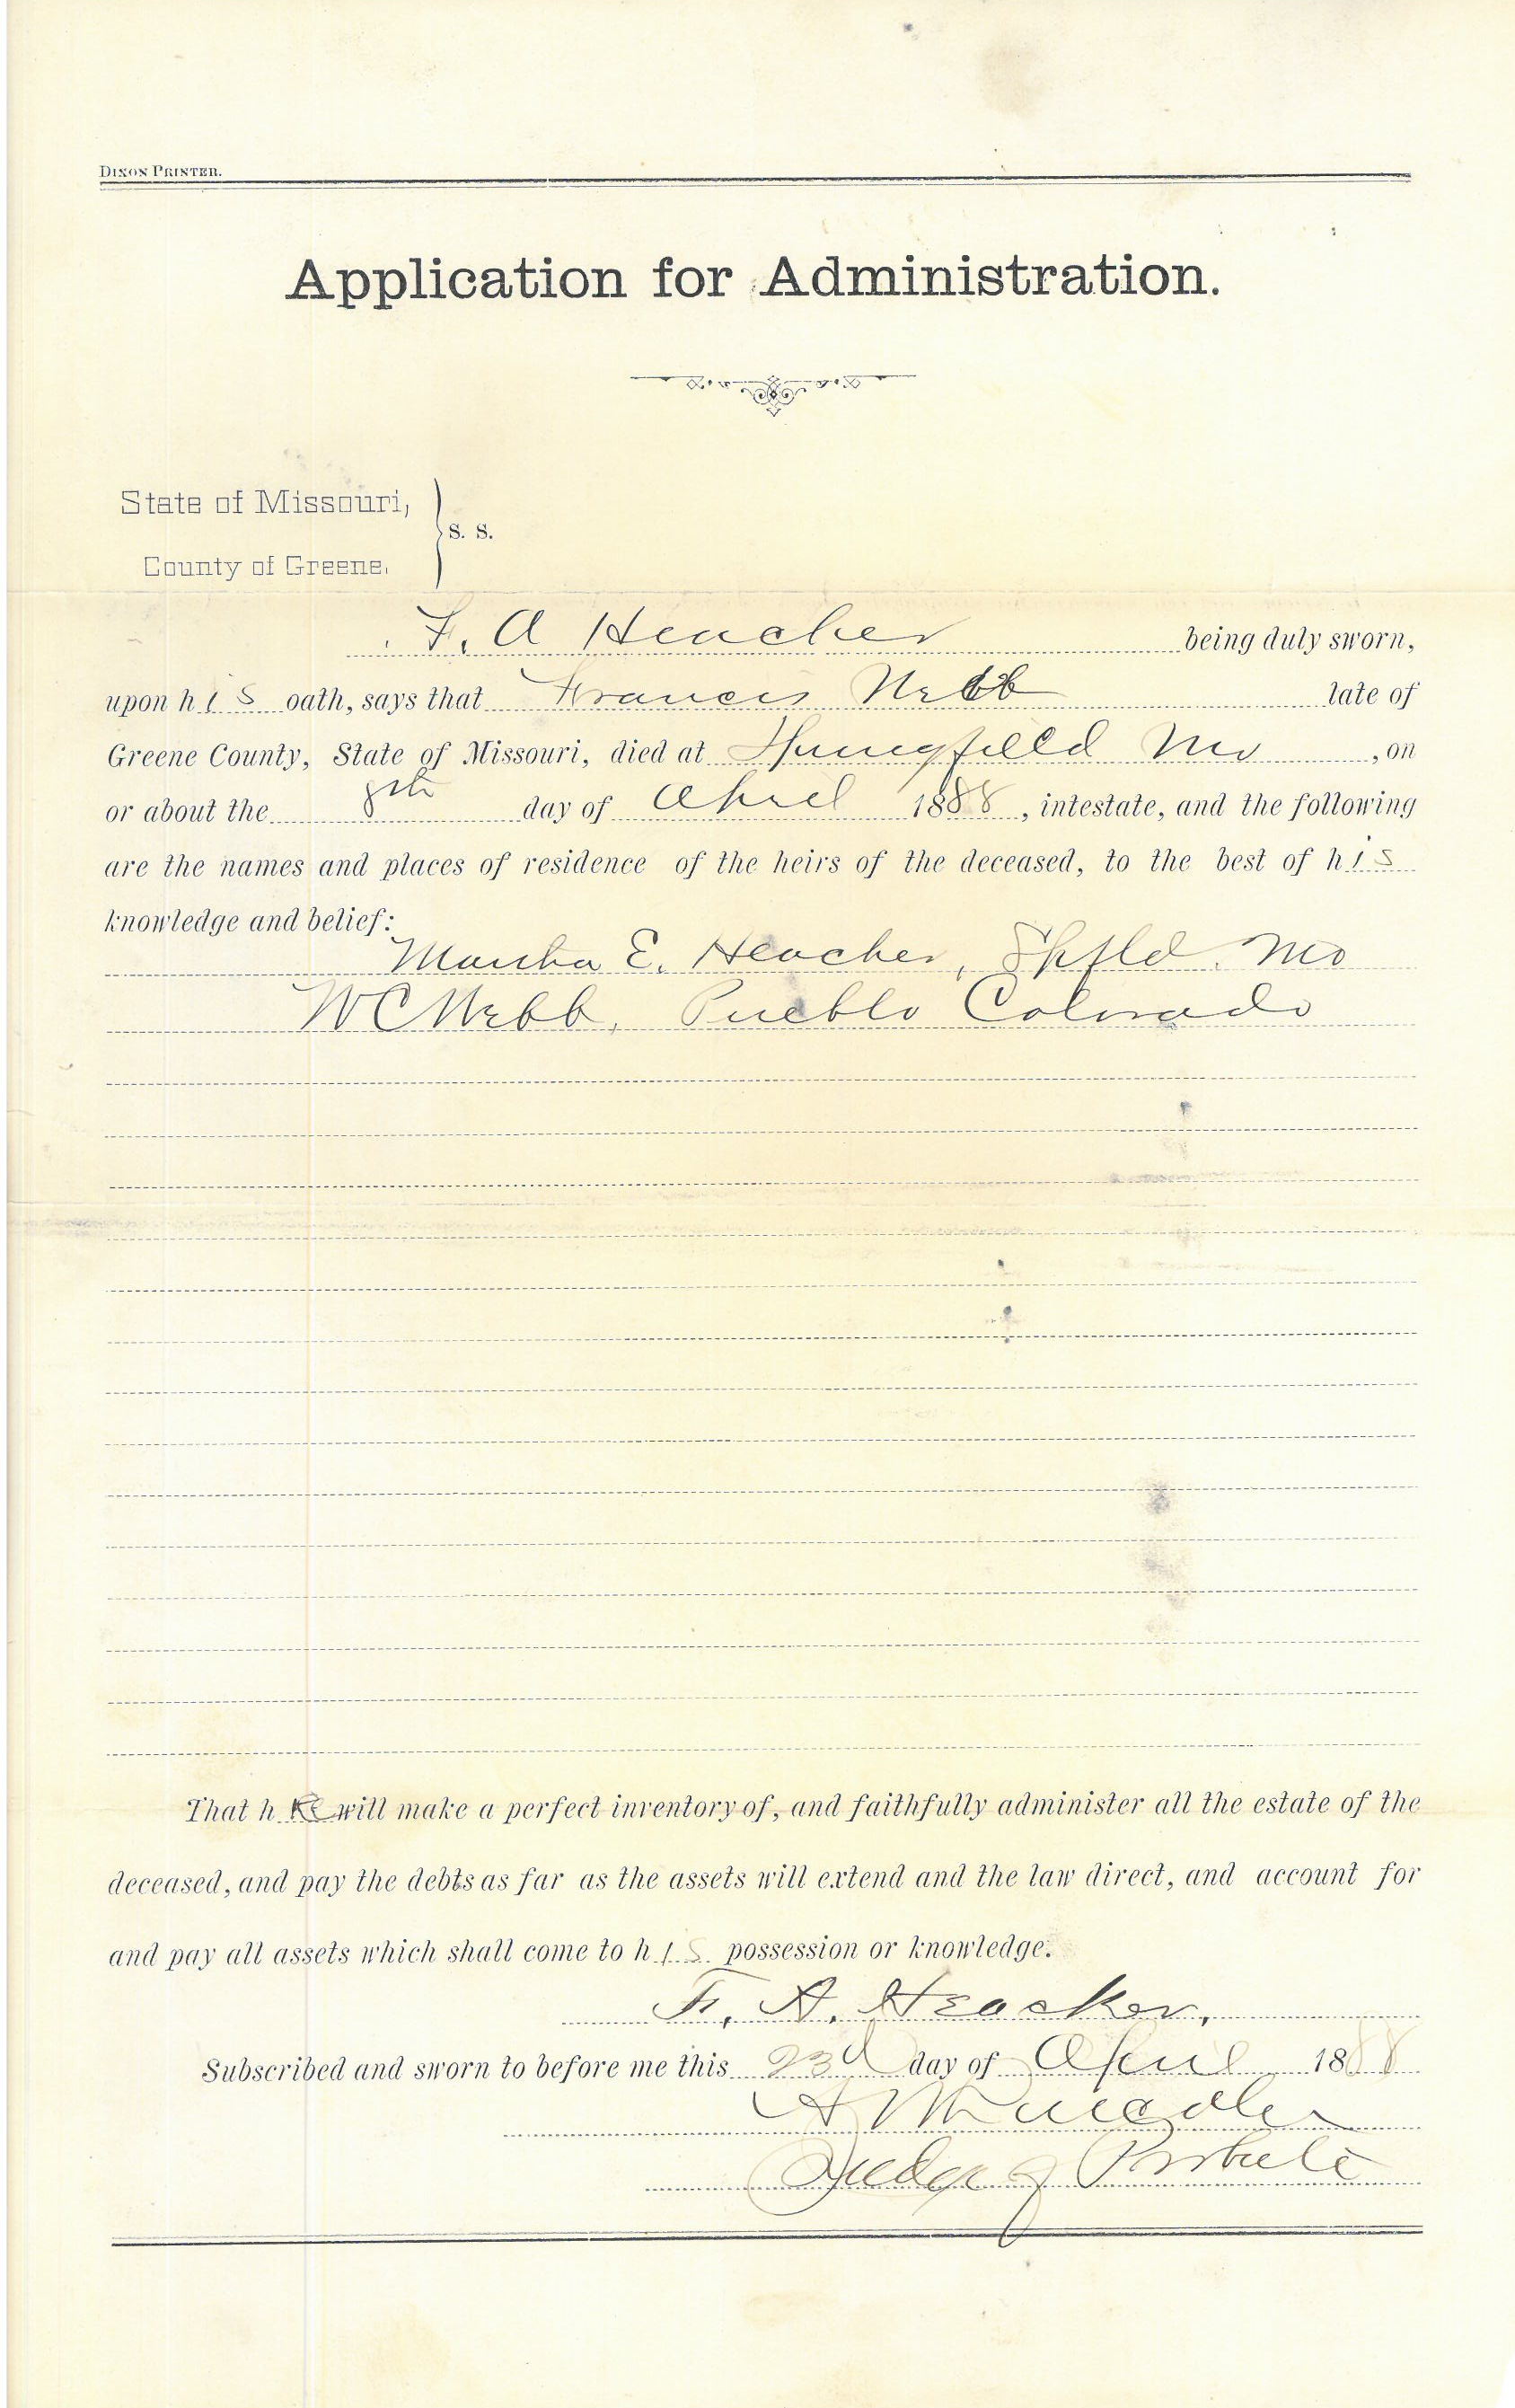 DIXON PRINTER.
Application for Administration.
State of Missouri,
S. S.
County of Greene.
F. A Heacker being duly sworn,
upon his oath, says that Francis Webb late of
Greene County, State of Missouri, died at Springfield Mo , on
or about the 8th day of April 1888, intestate, and the following
are the names and places of residence of the heirs of the deceased, to the best of his
knowledge and belief:
Martha E. Heacker, Spfld. Mo
W C Webb, Pueblo Colorado
That he will make a perfect inventory of, and faithfully administer all the estate of the
deceased, and pay the debts as far as the assets will extend and the law direct, and account for
and pay all assets which shall come to his possession or knowledge.
F. A. Heacker,
Subscribed and sworn to before me this 23d day of April 1888
Judge of Probate